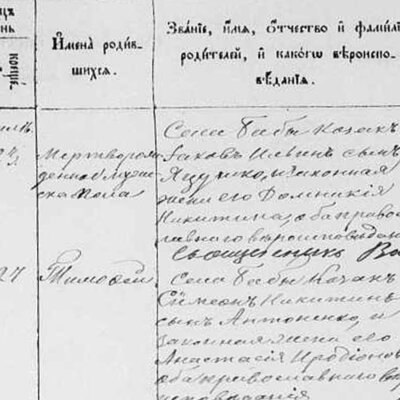 Имена родив-
шихся.
Званіе, имя, отчество и фамилія
родителей, и какогѡ вѣроиспо-
вѣданія.
Мертворож
денное мужес
ска пола
Села Бабы Козакъ
Іаковъ Ильинъ сынъ
Яцушко, и законная
жена его Домникія
Никитина, оба право
славнаго вѣроисповѣданія
Священникъ
27
Тимофей
Села Бабы Козакъ
Симеонъ Никитинъ
сынъ Антоненко, и
законная жена его
Анастасія Иродіонов
оба православнаго
исповѣданія